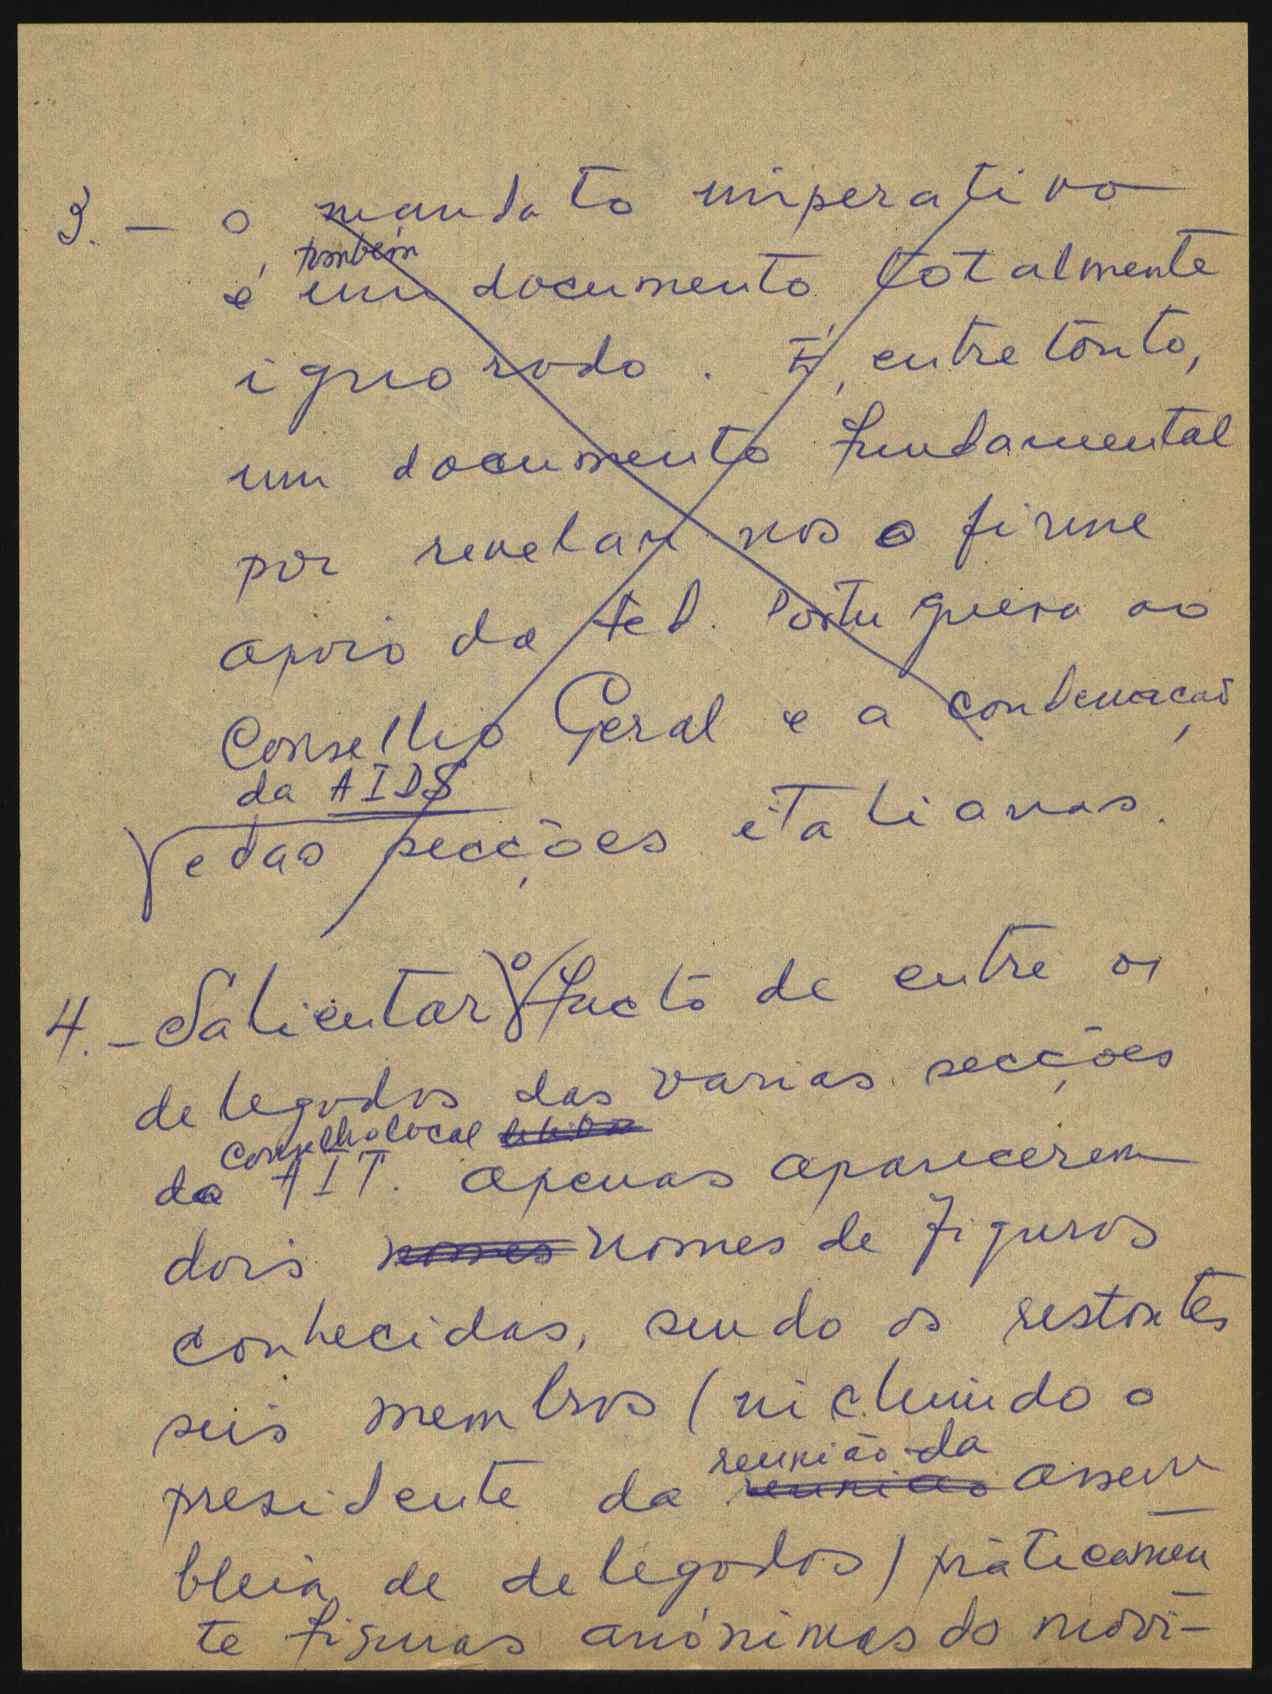 3. — O mandato imperativo
também
é um documento totalmente
ignorado. É, entretanto,
um documento fundamental
por revelar nos o firme
apoio da Fed. Portuguesa ao
Conselho Geral e a condenação
da AIDS
e das secções italianas.
4. — Salientar o facto de entre os
delegados das varias secções
Conselho local
da AIT. apenas aparecerem
dois nomes nomes de figuras
conhecidas, sendo os restantes
seis membros (incluindo o
reunião da
presidente da reunião assem
bleia de delegados) práticamen
te figuras anónimas do movi-